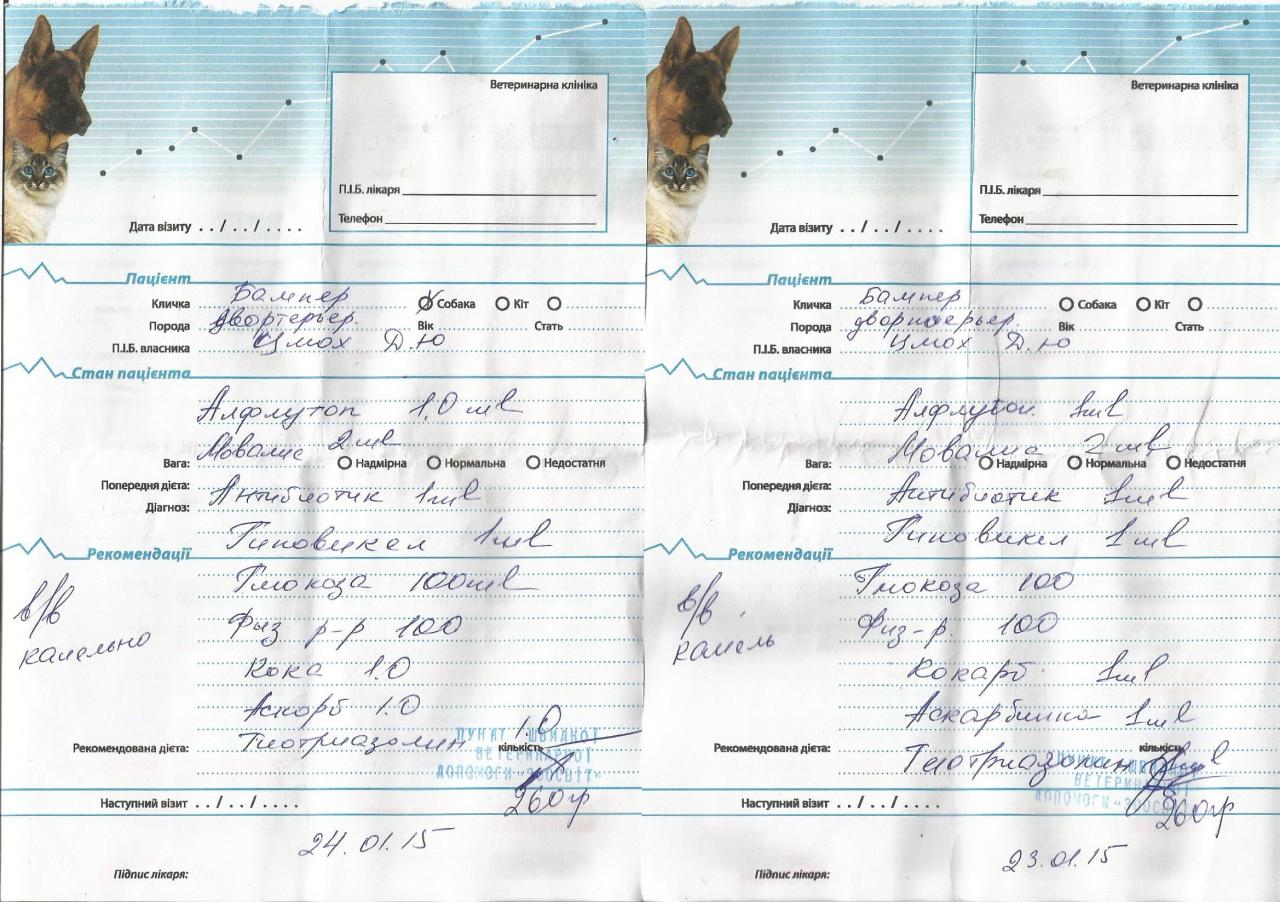 Ветеринарна клініка
П.І.Б. лікаря
Телефон
Дата візиту . . / . . / . . . .
Пацієнт
Кличка Бампер Собака Кіт
Порода двортерьер. Вік Стать
П.І.Б. власника Цмох Д.Ю
Стан пацієнта
Алфлутоп 1.0 мл
Мовалис 2 мл
Вага: Надмірна Нормальна Недостатня
Попередня дієта: Антибиотик 1 мл
Діагноз:
Гиповикел 1 мл
Рекомендації
Глюкоза 100 мл
в/в капельно
Физ р-р 100
Кока 1.0
Аскорб 1.0
Тиотриазолин 1.0
Рекомендована дієта: кількість
ПУНКТ ШВИДКОЇ
ВЕТЕРИНАРНОЇ
ДОПОМОГИ «ЗООСВІТ»
Наступний візит . . / . . / . . . .
260 гр
24.01.15
Підпис лікаря:
Ветеринарна клініка
П.І.Б. лікаря
Телефон
Дата візиту . . / . . / . . . .
Пацієнт
Кличка Бампер Собака Кіт
Порода двортерьер. Вік Стать
П.І.Б. власника Цмох Д.Ю
Стан пацієнта
Алфлутоп 1 мл
Мовалис 2 мл
Вага: Надмірна Нормальна Недостатня
Попередня дієта: Антибиотик 1 мл
Діагноз:
Гиповикел 1 мл
Рекомендації
Глюкоза 100
в/в капель
Физ-р. 100
Кокарб. 1 мл
Аскарбинка 1 мл
Тиотриазолин
Рекомендована дієта: кількість
ПУНКТ ШВИДКОЇ
ВЕТЕРИНАРНОЇ
ДОПОМОГИ «ЗООСВІТ»
Наступний візит . . / . . / . . . .
260 гр
23.01.15
Підпис лікаря: